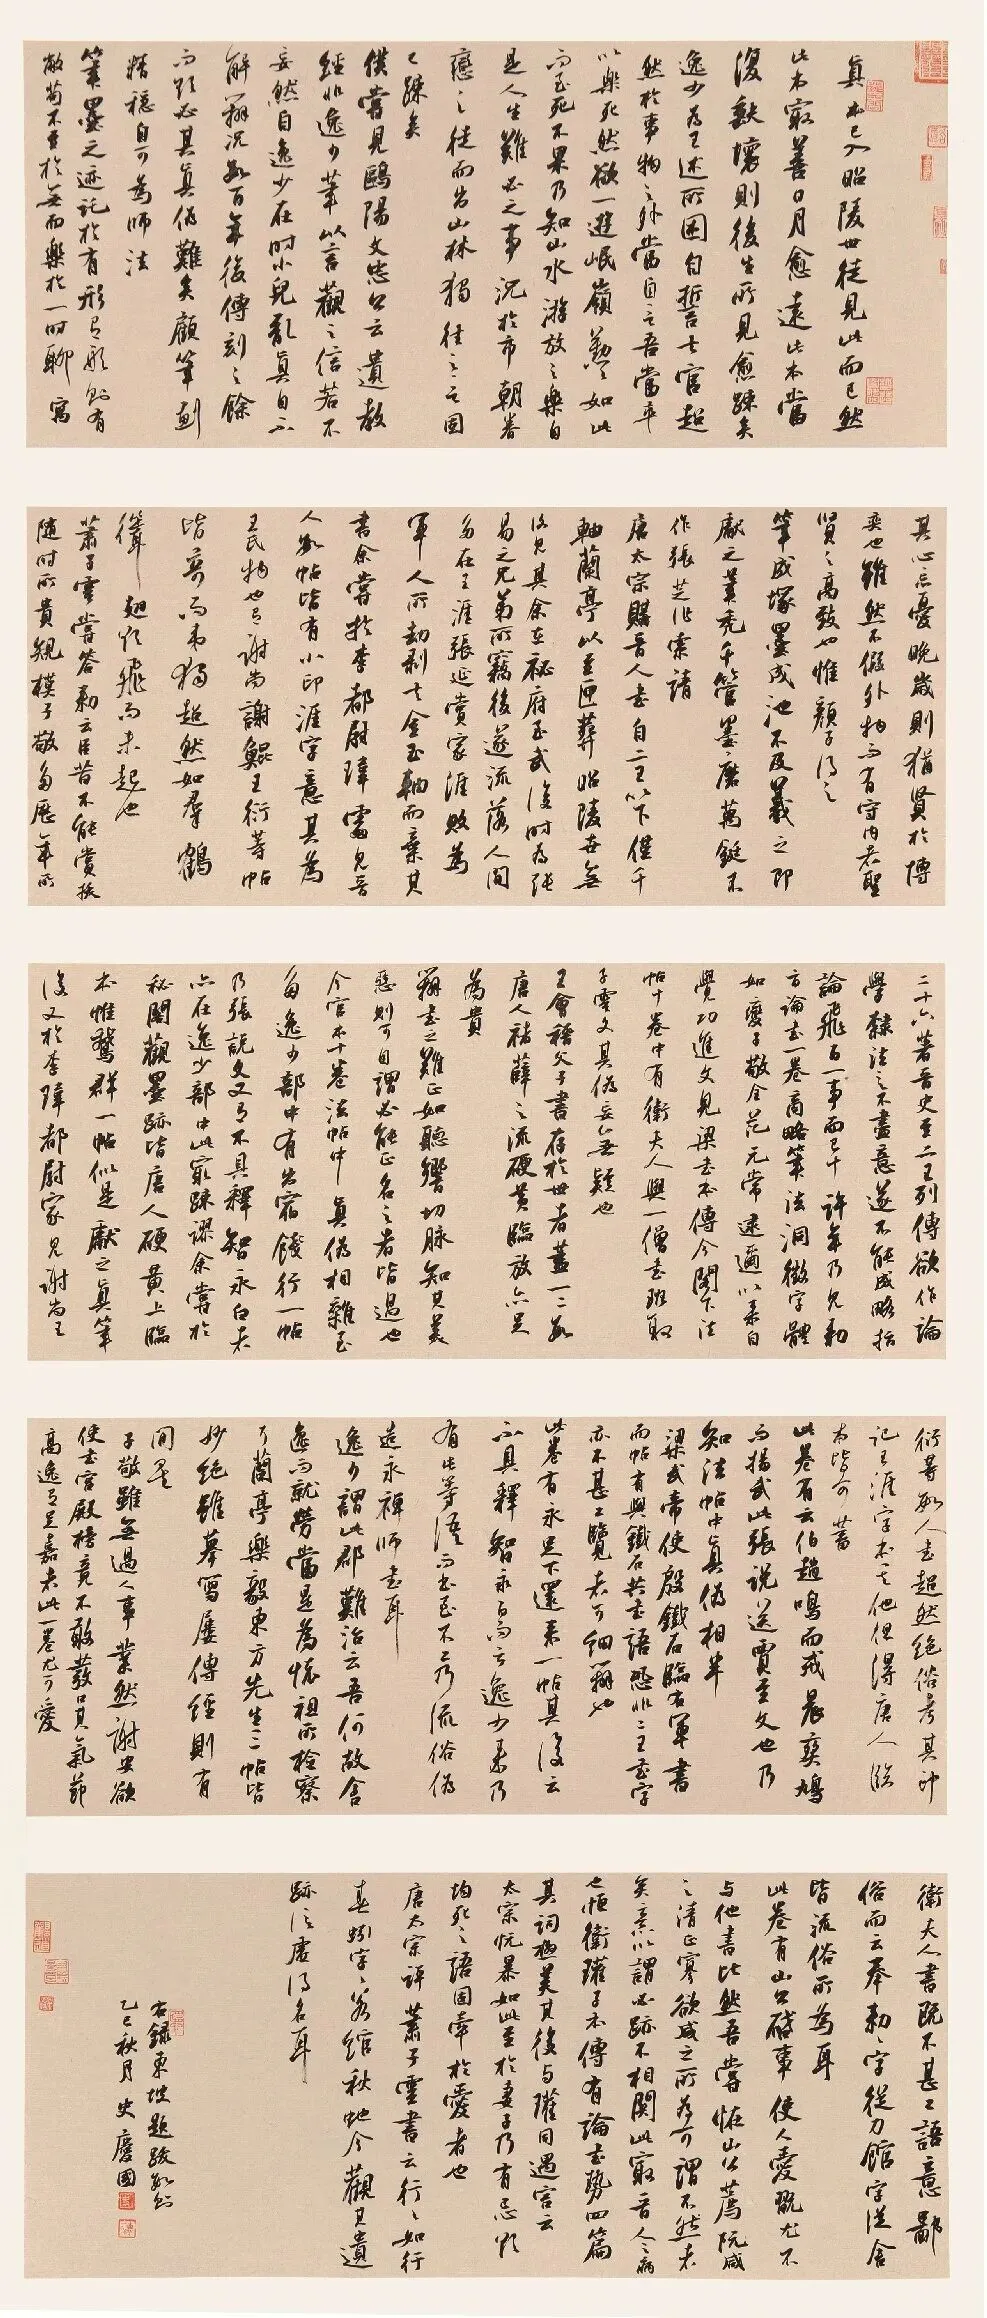 真本已入昭陵世徒見此而已然
此本最善日月愈遠此本當
復缺壞則後生所見愈疎矣
逸少為王述所困自誓去官超
然於事物之外嘗自言吾當卒
以樂死然欲一遊岷嶺勤勤如此
而至死不果乃知山水游放之樂自
是人生難必之事況於市朝眷
戀之徒而出山林獨往之言固
已疎矣
僕嘗見歐陽文忠公云遺教
經非逸少筆以言觀之信若不
妄然自逸少在時小兒亂真自不
解辨況數百年後傳刻之餘
而欲必其真偽難矣顧筆劃
精穩自可為師法
筆墨之迹託於有形有形則有
敝苟不至於無而樂於一時聊寓
其心忘憂晚歲則猶賢於博
奕也雖然不假外物而有守內者聖
賢之高致也惟顏子得之
筆成塚墨成池不及羲之即
獻之筆禿千管墨磨萬鋌不
作張芝作索靖
唐太宗購晉人書自二王以下僅千
軸蘭亭以玉匣葬昭陵世無
復見其餘在秘府至武后時為張
易之兄弟所竊後遂流落人間
多在王涯張延賞家涯敗為
軍人所劫剥去金玉軸而棄其
書余嘗於李都尉瑋處見晉
人數帖皆有小印涯字意其為
王氏物也有謝尚謝鯤王衍等帖
皆奇而夷獨超然如群鶴
聳翅欲飛而未起也
蕭子雲嘗答勅云臣昔不能賞拔
隨時所貴規模子敬多歷年所
二十六著晉史至二王列傳欲作論
學隸法言不盡意遂不能成略指
論飛白一事而已十許年乃見勅
方論書一卷商略筆法洞徹字體
始變子敬全范元常逮邇以來自
覺功進文見梁書本傳今閣下法
帖十卷中有衛夫人與一僧書班取
子雲文其偽妄無疑也
王會稽父子書存於世者蓋一二數
唐人褚薛之流硬黃臨放亦足
為貴
辨書之難正如聽響切脉知其美
惡則可自謂必能正名之者皆過也
今官本十卷法帖中真偽相雜至
多逸少部中有出宿餞行一帖
乃張說文又有不具釋智永白者
亦在逸少部中此最疎謬余嘗於
秘閣觀墨跡皆唐人硬黃上臨
本惟鵞群一帖似是獻之真筆
後又於李瑋都尉家見謝尚王
衍等數人書超然絕俗考其印
記王涯字本其他但得唐人臨
本皆可蓄
此卷有云伯趙鳴而戒晨爽鳩
而揚武此張說送賈至文也乃
知法帖中真偽相半
梁武帝使殷鐵石臨右軍書
而帖有與鐵石共書語恐非二王書字
亦不甚工覽者可細辨也
此卷有永足下還來一帖其後云
不具釋智永白而云逸少書乃
有此等語而書至不工乃流俗偽
造永禪師書耳
逸少謂此郡難治云吾何故舍
逸而就勞當是為懷祖所檢察
耳蘭亭樂毅東方先生三帖皆
妙絕雖摹寫屢傳經則有
間矣
子敬雖無過人事業然謝安欲
使書宮殿榜竟不敢發口其氣節
高逸有足嘉者此一卷尤可愛
衛夫人書既不甚工語意鄙
俗而云奉勅勅字從力館字從舍
皆流俗所為耳
此卷有山公啟事使人愛玩尤不
與他書比然吾嘗怪山公薦阮咸
之清正寡欲咸之所為可謂不然者
矣意以謂心跡不相關此最晉人之病
也恒衛瓘子本傳有論書勢四篇
其詞極美其後與瓘同遇害云
太宗忼暴如此至於妻子乃有忌欲
均死之語固牽於愛者也
唐太宗評蕭子雲書云行行如行
春蚓字字若綰秋蛇今觀其遺
跡信虛得名耳
右錄東坡題跋數則
乙巳秋月史慶國